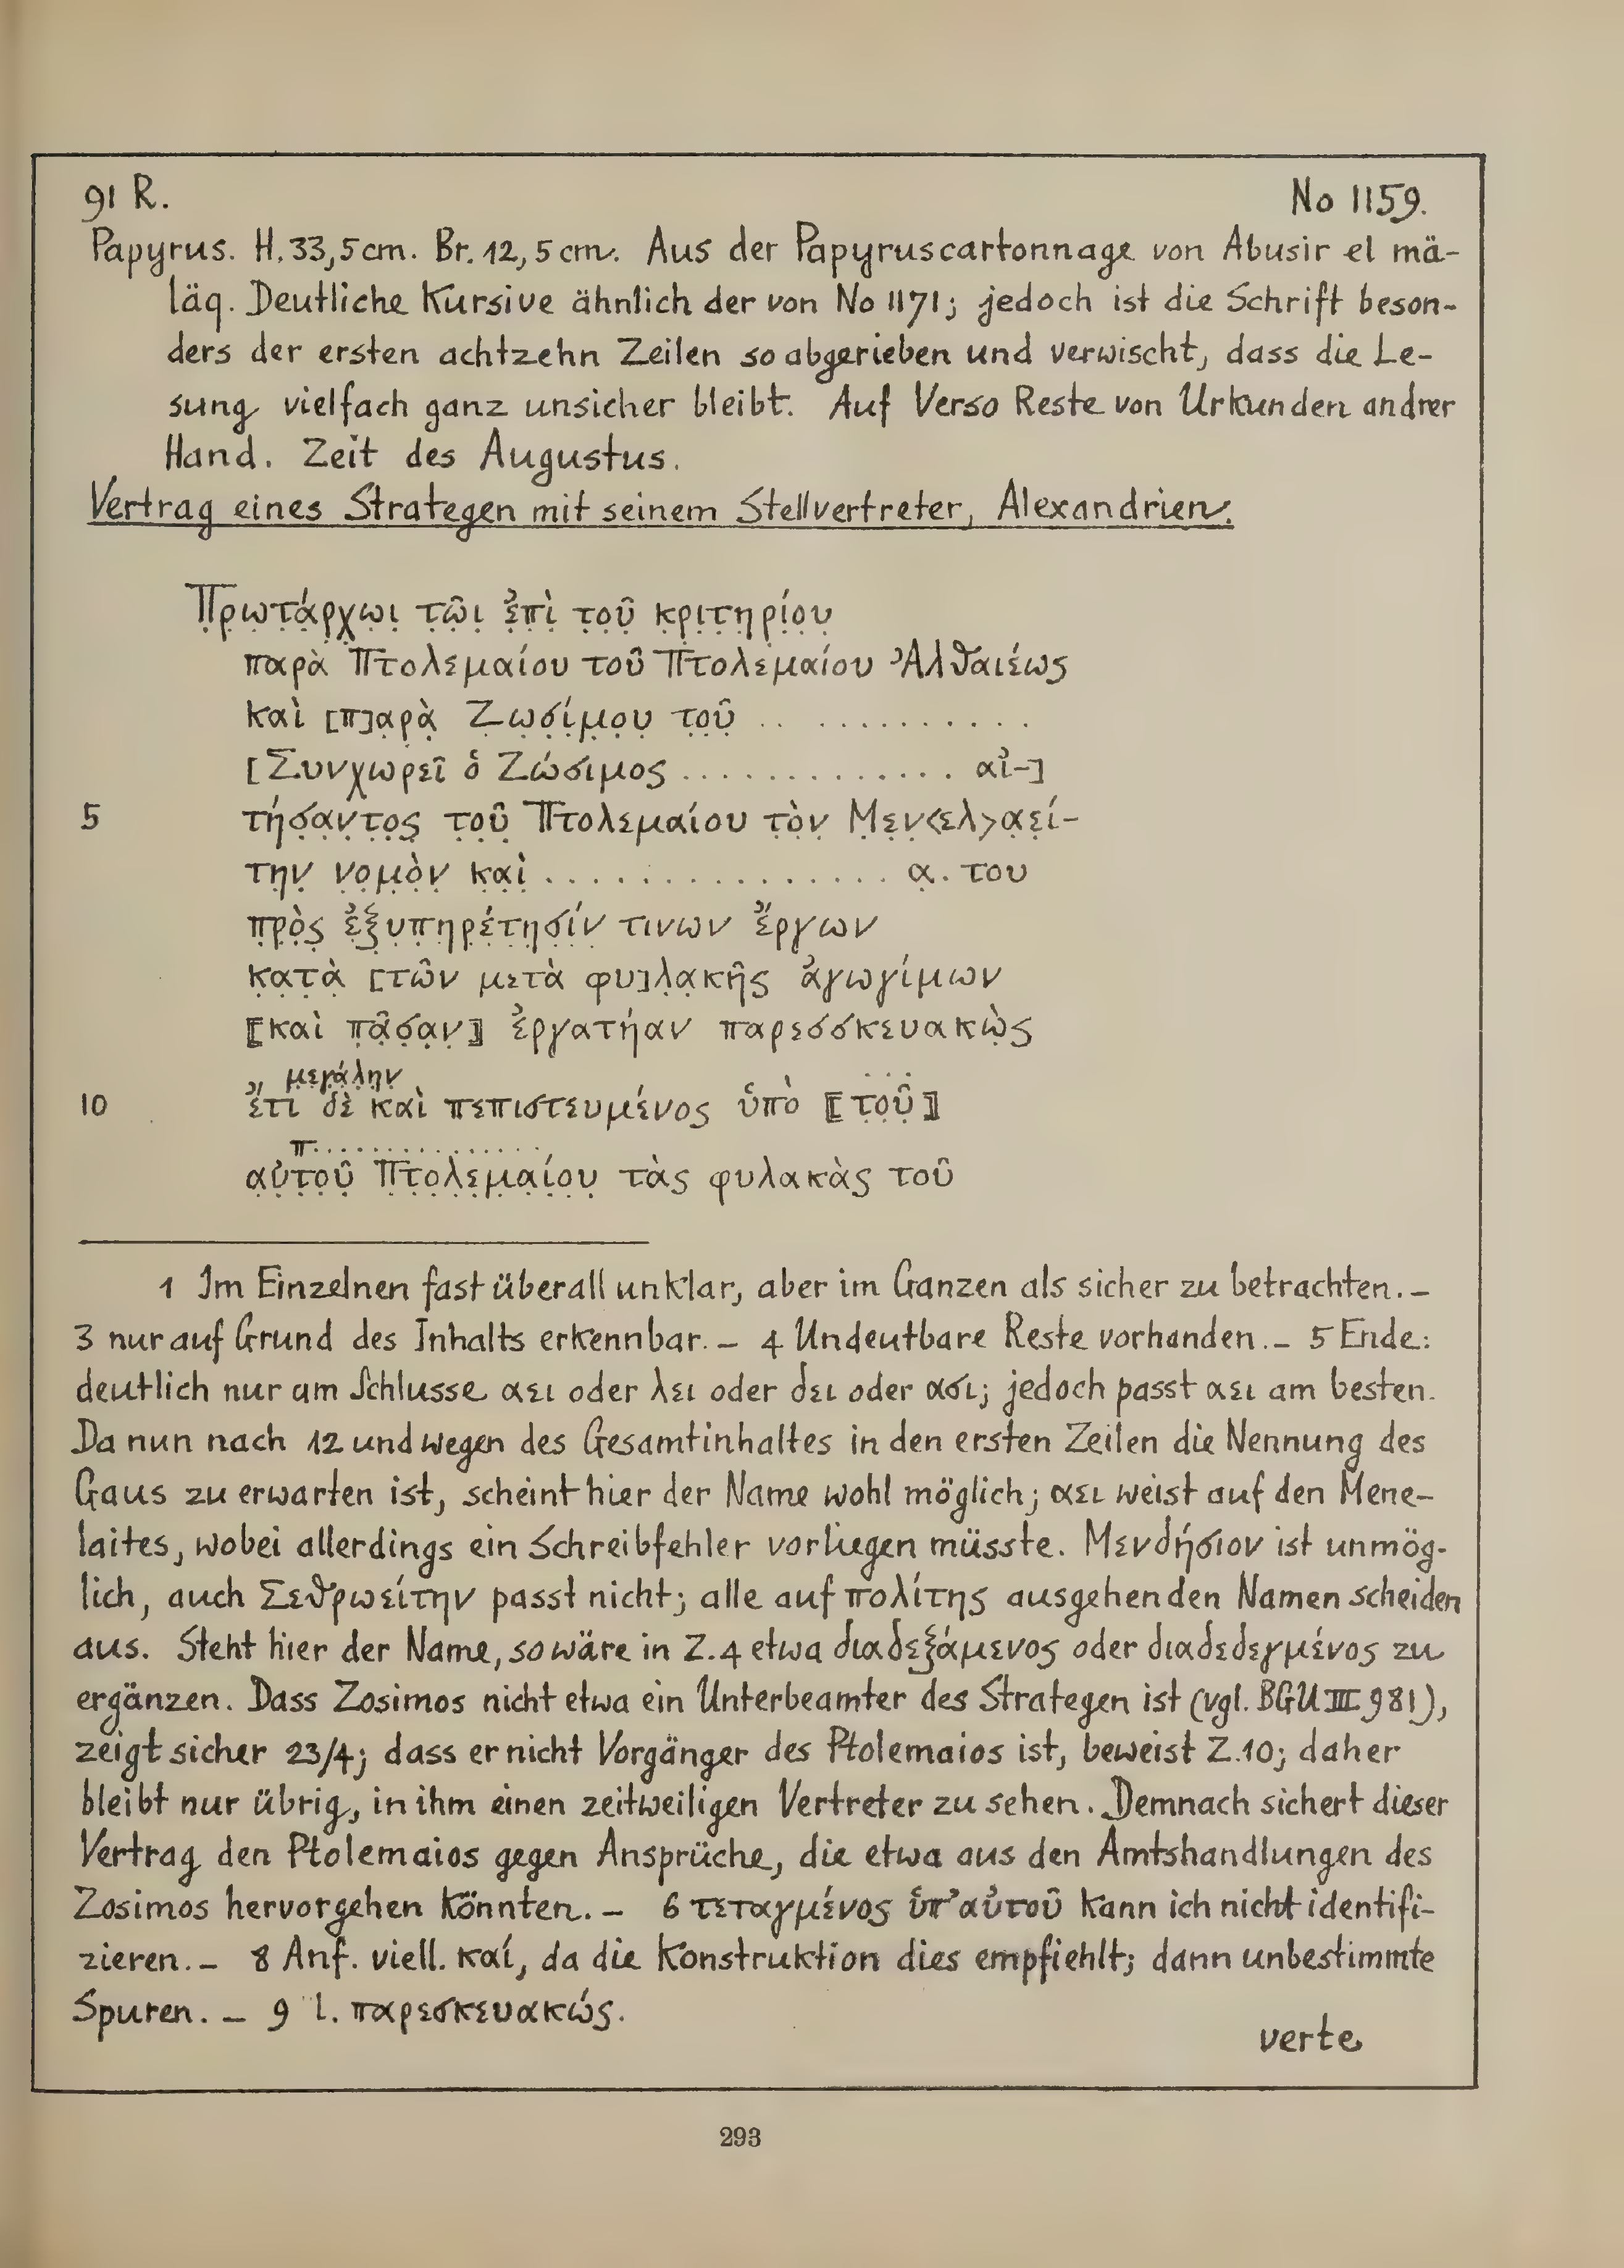 91 R.
No 1159.
Papyrus. H. 33,5 cm. Br. 12,5 cm. Aus der Papyruscartonnage von Abusir el mä-
läq. Deutliche Kursive ähnlich der von No 1171; jedoch ist die Schrift beson-
ders der ersten achtzehn Zeilen so abgerieben und verwischt, dass die Le-
sung vielfach ganz unsicher bleibt. Auf Verso Reste von Urkunden andrer
Hand. Zeit des Augustus.
Vertrag eines Strategen mit seinem Stellvertreter, Alexandrien.
Π̣ρ̣ω̣τ̣ά̣ρ̣χ̣ω̣ι̣ τ̣ῶ̣ι̣ ἐ̣π̣ὶ̣ τ̣ο̣ῦ̣ κ̣ρ̣ι̣τ̣η̣ρ̣ί̣ο̣υ̣
παρὰ Πτολεμαίου τοῦ Πτολεμαίου Ἀλθαιέως
καὶ [π]α̣ρ̣ὰ̣ Ζ̣ω̣σ̣ί̣μ̣ο̣υ̣ τ̣ο̣ῦ̣ .. ...........
[Συνχωρεῖ ὁ Ζώσιμος ............. αἰ-]
5 τή̣σ̣α̣ν̣τ̣ο̣ς̣ τ̣ο̣ῦ̣ Πτολεμαίου τ̣ὸ̣ν̣ Μ̣ε̣ν̣<ελ>α̣ε̣ί-
τ̣η̣ν̣ ν̣ο̣μ̣ὸ̣ν̣ κ̣α̣ὶ̣ ............... α̣. του
π̣ρ̣ὸ̣ς̣ ἐ̣ξ̣υ̣π̣η̣ρ̣έ̣τ̣η̣σ̣ί̣ν̣ τινων ἔργων
κ̣α̣τ̣ὰ̣ [τῶν μετὰ φυ]λ̣α̣κ̣ῆ̣ς ἀγωγίμων
⟦καὶ π̣ᾶ̣σ̣α̣ν̣⟧ ἐργατήαν παρεσσκευακὼ̣ς
μ̣ε̣γ̣ά̣λ̣η̣ν̣ ...
10 ἔτι δὲ καὶ πεπιστευμένος ὑπὸ ⟦τ̣ο̣ῦ̣⟧
π..............
α̣ὐ̣τ̣ο̣ῦ̣ Π̣τ̣ο̣λ̣ε̣μ̣α̣ί̣ο̣υ̣ τὰς φυλακὰς τοῦ
1 Im Einzelnen fast überall unklar, aber im Ganzen als sicher zu betrachten. –
3 nur auf Grund des Inhalts erkennbar. – 4 Undeutbare Reste vorhanden. – 5 Ende:
deutlich nur am Schlusse αει oder λει oder δει oder ασι; jedoch passt αει am besten.
Da nun nach 12 und wegen des Gesamtinhaltes in den ersten Zeilen die Nennung des
Gaus zu erwarten ist, scheint hier der Name wohl möglich; αει weist auf den Mene-
laites, wobei allerdings ein Schreibfehler vorliegen müsste. Μενδήσιον ist unmög-
lich, auch Σεθρωείτην passt nicht; alle auf πολίτης ausgehenden Namen scheiden
aus. Steht hier der Name, so wäre in Z. 4 etwa διαδεξάμενος oder διαδεδεγμένος zu
ergänzen. Dass Zosimos nicht etwa ein Unterbeamter des Strategen ist (vgl. BGU III 981),
zeigt sicher 23/4; dass er nicht Vorgänger des Ptolemaios ist, beweist Z. 10; daher
bleibt nur übrig, in ihm einen zeitweiligen Vertreter zu sehen. Demnach sichert dieser
Vertrag den Ptolemaios gegen Ansprüche, die etwa aus den Amtshandlungen des
Zosimos hervorgehen könnten. – 6 τεταγμένος ὑπ' αὐτοῦ kann ich nicht identifi-
zieren. – 8 Anf. viell. καί, da die Konstruktion dies empfiehlt; dann unbestimmte
Spuren. – 9 l. παρεσκευακώς.
verte
293